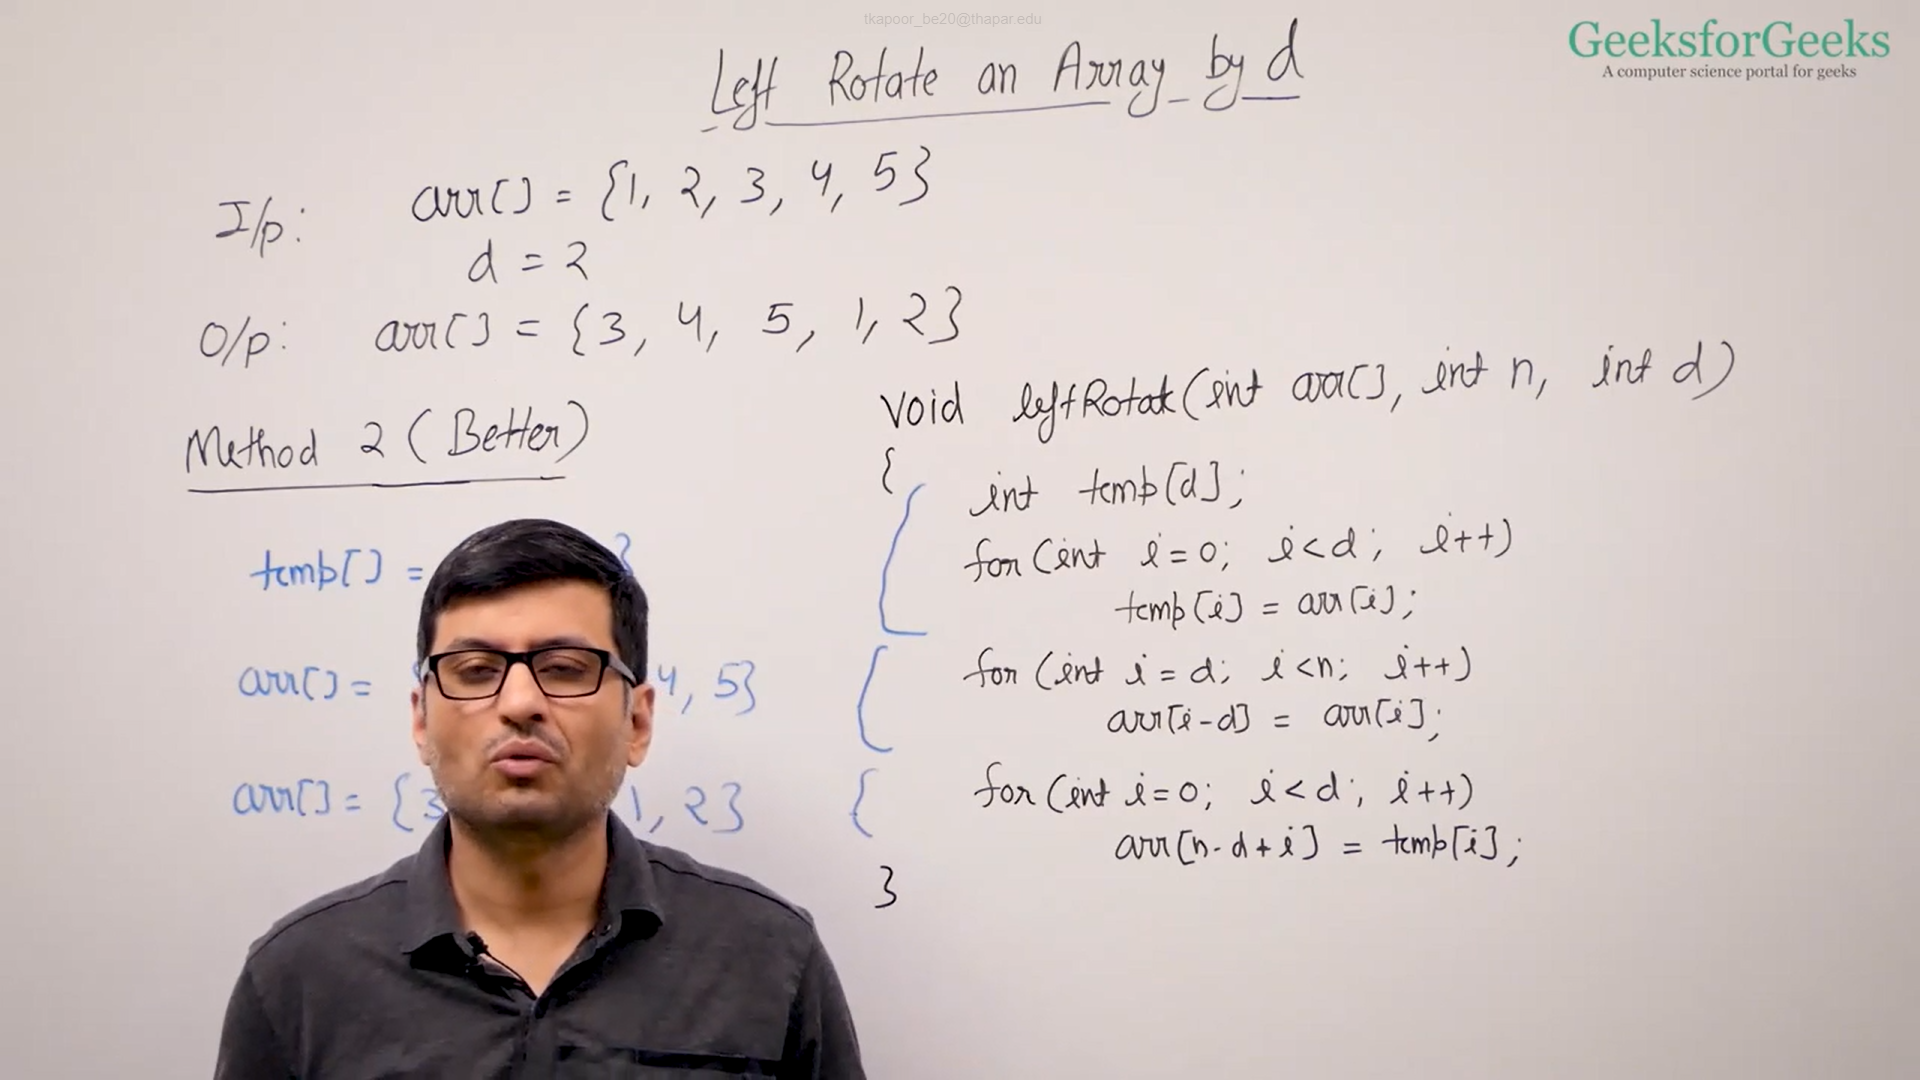 tkapoor_be20@thapar.edu
GeeksforGeeks
A computer science portal for geeks
Left Rotate an Array by d
I/p: arr[] = {1, 2, 3, 4, 5}
d = 2
O/p: arr[] = {3, 4, 5, 1, 2}
Method 2 (Better)
temp[] = }
arr[] = 4, 5}
arr[] = {3 1, 2}
void leftRotate(int arr[], int n, int d)
{
int temp[d];
for (int i=0; i<d; i++)
temp[i] = arr[i];
for (int i = d; i<n; i++)
arr[i-d] = arr[i];
for (int i=0; i<d; i++)
arr[n-d+i] = temp[i];
}